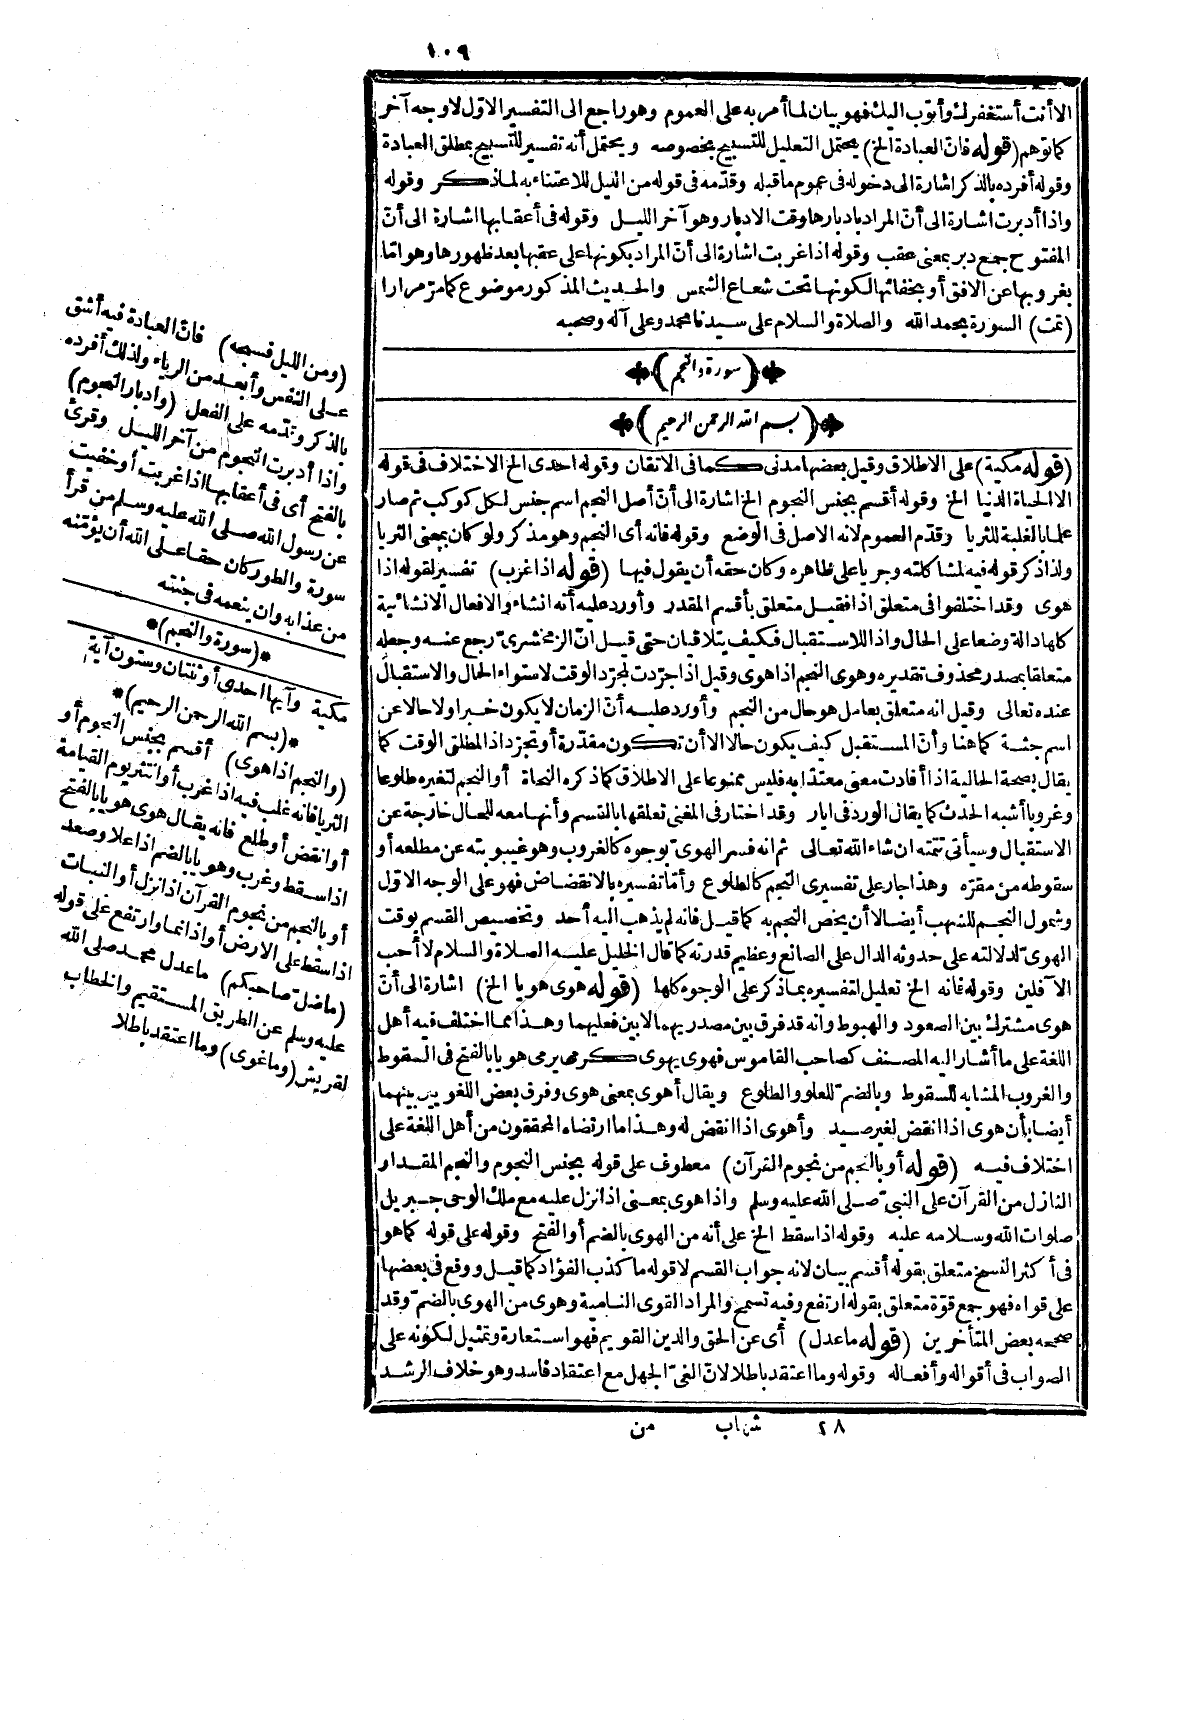 ١٠٩
الا أنت أستغفرك وأتوب اليك فهو بيان لما أمر به على العموم وهو راجع الى التفسير الاوّل لا وجه آخر
كما توهم (قوله فانّ العبادة الخ) يحتمل التعليل للتسبيح بخصوصه ويحتمل أنه تفسير للتسبيح بمطلق العبادة
وقوله أفرده بالذكر اشارة الى دخوله فى عموم ما قبله وقدّمه فى قوله من الليل للاعتناء به لما ذكر وقوله
واذا أدبرت اشارة الى أنّ المراد بادبارها وقت الادبار وهو آخر الليل وقوله فى أعقابها اشارة الى أنّ
المفتوح جمع دبر بمعنى عقب وقوله اذا غربت اشارة الى أنّ المراد بكونها على عقبها بعد ظهورها وهو امّا
بغروبها عن الافق أو بخفائها لكونها تحت شعاع الشمس والحديث المذكور موضوع كما مرّ مرارا
(تمت) السورة بحمد الله والصلاة والسلام على سيدنا محمد وعلى آله وصحبه
(سورة والنجم)
(بسم الله الرحمن الرحيم)
(قوله مكية) على الاطلاق وقيل بعضها مدنى كما فى الاتقان وقوله احدى الخ الاختلاف فى قوله
الا الحياة الدنيا الخ وقوله أقسم بجنس النجوم الخ اشارة الى أنّ أصل النجم اسم جنس لكل كوكب ثم صار
علما بالغلبة للثريا وقدّم العموم لانه الاصل فى الوضع وقوله فانه أى النجم وهو مذكر ولو كان بمعنى الثريا
ولذا ذكر قوله فيه لمشاكلته وجريا على ظاهره وكان حقه أن يقول فيها (قوله اذا غرب) تفسير لقوله اذا
هوى وقد اختلفوا فى متعلق اذا فقيل متعلق بأقسم المقدر وأورد عليه أنه انشاء والافعال الانشائية
كلها دالة وضعا على الحال واذا للاستقبال فكيف يتلاقيان حتى قيل انّ الزمخشرىّ رجع عنه وجعله
متعلقا بمصدر محذوف تقديره وهوى النجم اذا هوى وقيل اذا جرّدت لمجرّد الوقت لاستواء الحال والاستقبال
عنده تعالى وقيل انه متعلق بعامل هو حال من النجم وأورد عليه أنّ الزمان لا يكون خبرا ولا حالا عن
اسم جثة كما هنا وأنّ المستقبل كيف يكون حالا الا أن تكون مقدّرة أو تجرّد اذا لمطلق الوقت كما
يقال بصحة الحالية اذا أفادت معنى معتدّا به فليس ممنوعا على الاطلاق كما ذكره النحاة أو النجم لتغيره طلوعا
وغروبا أشبه الحدث كما يقال الورد فى ايار وقد اختار فى المغنى تعلقها بالقسم وأنها معه للحال خارجة عن
الاستقبال وسيأتى تتمته ان شاء الله تعالى ثم انه فسر الهوىّ بوجوه كالغروب وهو غيبوبته عن مطلعه أو
سقوطه من مقرّه وهذا جار على تفسيرى النجم كالطلوع وأمّا تفسيره بالانقضاض فهو على الوجه الاوّل
وشمول النجم للشهب أيضا لا أن يخص النجم به كما قيل فانه لم يذهب اليه أحد وتخصيص القسم بوقت
الهوىّ لدلالته على حدوثه الدال على الصانع وعظيم قدرته كما قال الخليل عليه الصلاة والسلام لا أحب
الآفلين وقوله فانه الخ تعليل لتفسيره بما ذكر على الوجوه كلها (قوله هوى هويا الخ) اشارة الى أنّ
هوى مشترك بين الصعود والهبوط وانه قد فرق بين مصدريهما لا بين فعليهما وهذا مما اختلف فيه أهل
اللغة على ما أشار اليه المصنف كصاحب القاموس فهوى يهوى كرمى يرمى هويا بالفتح فى السقوط
والغروب المشابه للسقوط وبالضم للعلو والطلوع ويقال أهوى بمعنى هوى وفرق بعض اللغويين بينهما
أيضا بأن هوى اذا انقض لغير صيد وأهوى اذا انقض له وهذا ما ارتضاه المحققون من أهل اللغة على
اختلاف فيه (قوله أو بالنجم من نجوم القرآن) معطوف على قوله بجنس النجوم والنجم المقدار
النازل من القرآن على النبىّ صلى الله عليه وسلم واذا هوى بمعنى اذا نزل عليه مع ملك الوحى جبريل
صلوات الله وسلامه عليه وقوله اذا سقط الخ على أنه من الهوى بالضم أو الفتح وقوله على قوله كما هو
فى أكثر النسخ متعلق بقوله أقسم بيان لانه جواب القسم لا قوله ما كذب الفؤاد كما قيل ووقع فى بعضها
على قواه فهو جمع قوّة متعلق بقوله ارتفع وفيه تسمح والمراد القوى النامية وهوى من الهوى بالضمّ وقد
صححه بعض المتأخرين (قوله ما عدل) أى عن الحق والدين القويم فهو استعارة وتمثيل لكونه على
الصواب فى أقواله وأفعاله وقوله وما اعتقد باطلا لانّ الغىّ الجهل مع اعتقاد فاسد وهو خلاف الرشد
٢٨ شهاب من
(ومن الليل فسبحه) فانّ العبادة فيه أشق
على النفس وأبعد من الرياء ولذلك أفرده
بالذكر وقدّمه على الفعل (وادبار النجوم)
واذا أدبرت النجوم من آخر الليل وقرئ
بالفتح أى فى أعقابها اذا غربت أو خفيت
عن رسول الله صلى الله عليه وسلم من قرأ
سورة والطور كان حقا على الله أن يؤمّنه
من عذابه وان ينعمه فى جنته
*(سورة والنجم)*
مكية وآيها احدى أو ثنتان وستون آية
*(بسم الله الرحمن الرحيم)*
(والنجم اذا هوى) أقسم بجنس النجوم أو
الثريا فانه غلب فيه اذا غرب أو انتثر يوم القيامة
أو انقض أو طلع فانه يقال هوى هويا بالفتح
اذا سقط وغرب وهويا بالضم اذا علا وصعد
أو بالنجم من نجوم القرآن اذا نزل أو النبات
اذا سقط على الارض أو اذا نما وارتفع على قوله
(ما ضلّ صاحبكم) ما عدل محمد صلى الله
عليه وسلم عن الطريق المستقيم والخطاب
لقريش (وما غوى) وما اعتقد باطلا